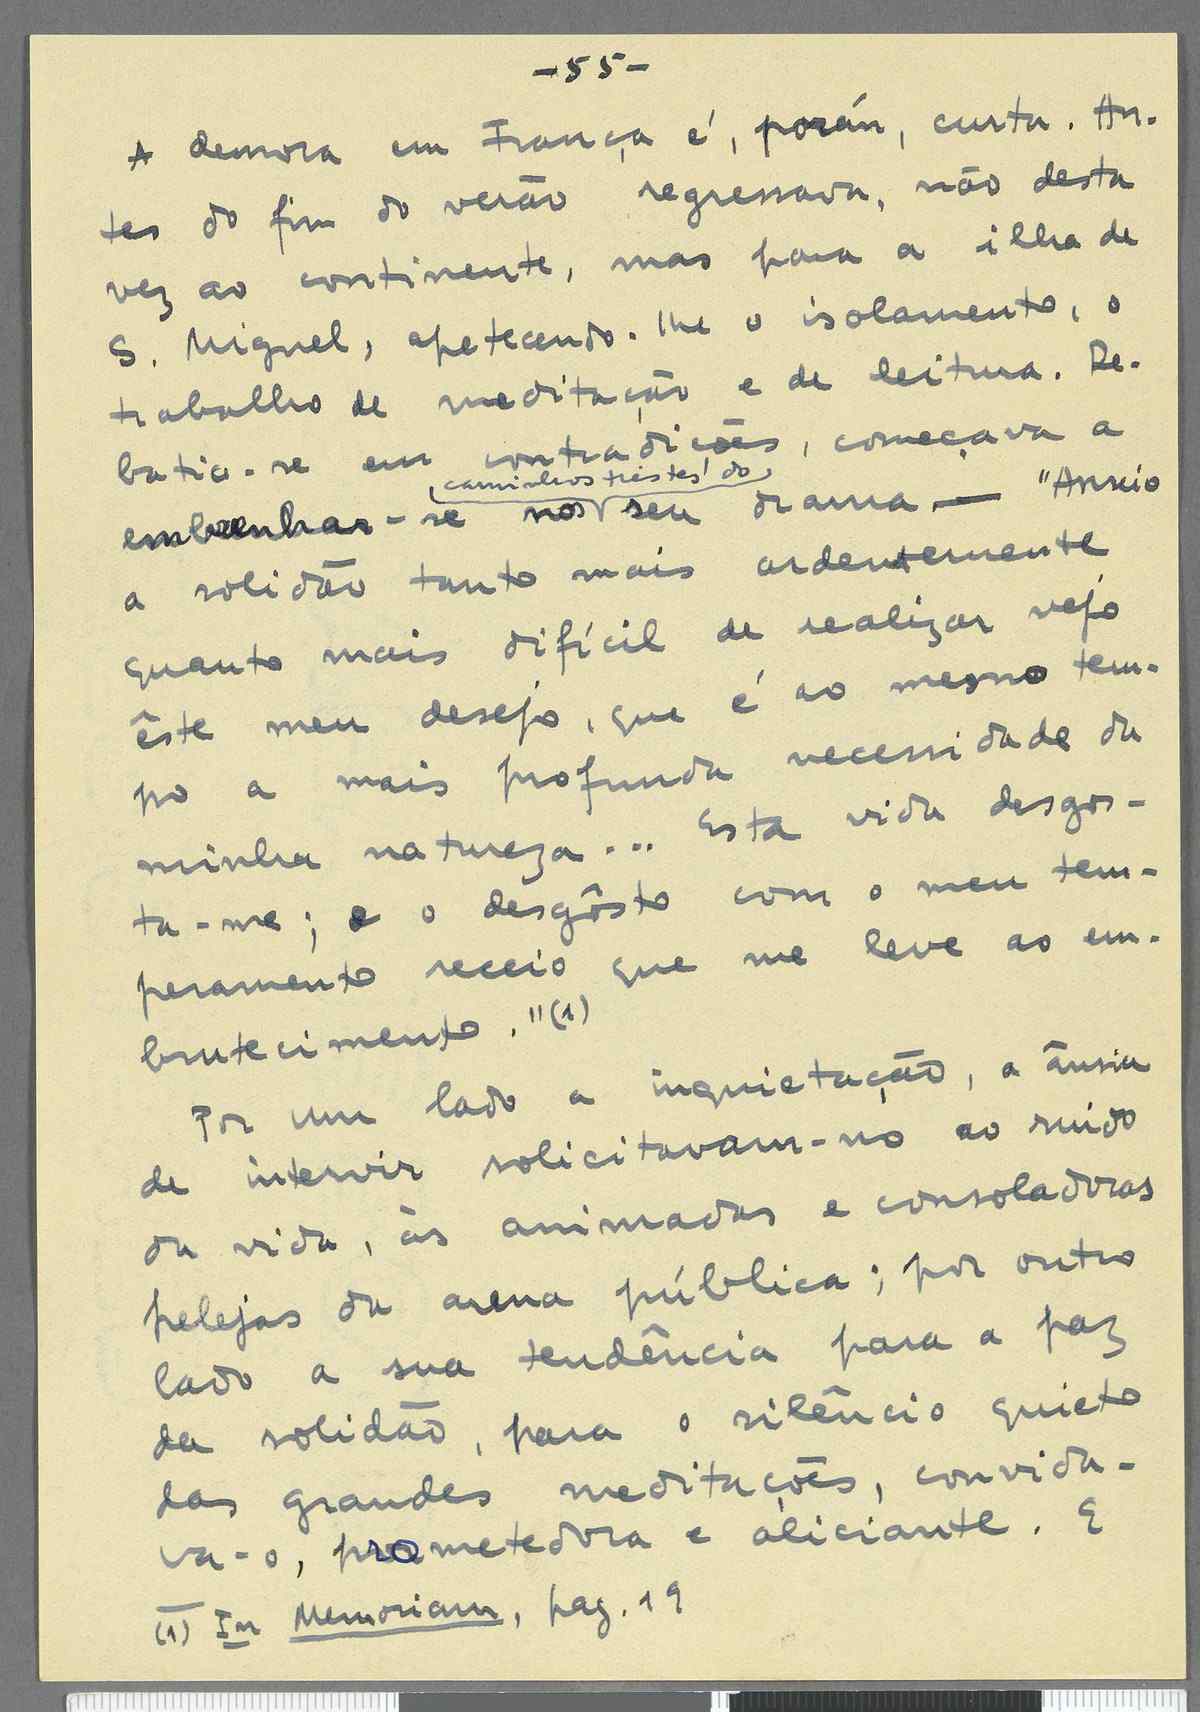 -55-
A demora em França é, porém, curta. An-
tes do fim do verão regressava, não desta
vez ao continente, mas para a ilha de
S. Miguel, apetecendo-lhe o isolamento, o
trabalho de meditação e de leitura. De-
batia-se em contradições, começava a
caminhos tristes do
embrenhar-se nos seu drama — "Anseio
a solidão tanto mais ardentemente
quanto mais difícil de realizar vejo
êste meu desejo, que é ao mesmo tem-
po a mais profunda necessidade da
minha natureza... Esta vida desgos-
ta-me; e o desgôsto com o meu tem-
peramento receio que me leve ao em-
brutecimento."(1)
Por um lado a inquietação, a ânsia
de intervir solicitavam-no ao ruido
da vida, às animadas e consoladoras
pelejas da arena pública; por outro
lado a sua tendência para a paz
da solidão, para o silêncio quieto
das grandes meditações, convida-
va-o, prometedora e aliciante. E
(1) In Memoriam, pag. 19